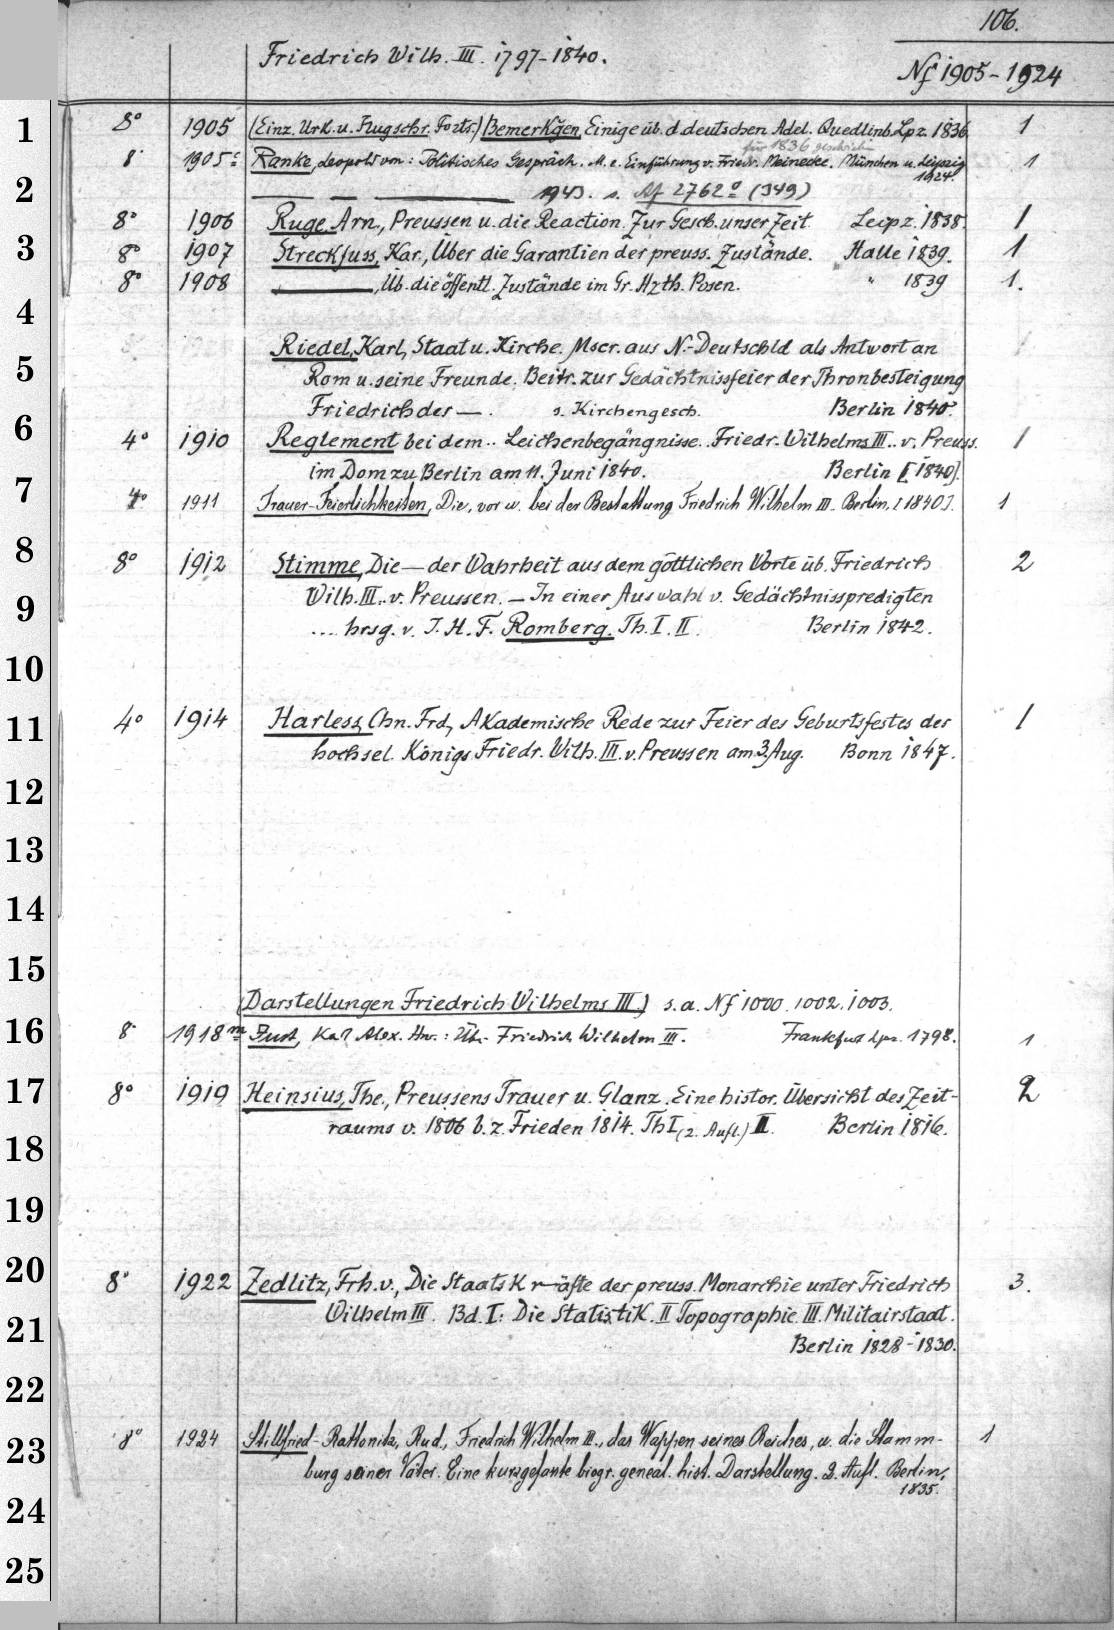 106.
Friedrich Wilh. III. 1797-1840.
Nf 1905-1924
1 8° 1905 (Einz. Urk. u. Flugschr. Forts.) Bemerkg̃en, Einige üb. d. deutschen Adel. Quedlinb. Lpz. 1836. 1
für 1836 geschrieben
8° 1905ᶜ Ranke, Leopold von: Politisches Gespräch. M. e. Einführung v. Friedr. Meinecke. München u. Leipzig 1
1924.
2 —— — ———— 1943. s. Af 2762° (349)
8° 1906 Ruge, Arn., Preussen u. die Reaction. Zur Gesch. unser Zeit. Leipz. 1838. 1
3 8° 1907 Streckfuss, Kar., Über die Garantien der preuss. Zustände. Halle 1839. 1
8° 1908 ————, Üb. die öffentl. Zustände im Gr. Hzth. Posen. " 1839 1.
4
5 Riedel, Karl, Staat u. Kirche. Mscr. aus N.-Deutschld als Antwort an
Rom u. seine Freunde. Beitr. zur Gedächtnissfeier der Thronbesteigung
6 Friedrich des —. s. Kirchengesch. Berlin 1840.
4° 1910 Reglement bei dem .. Leichenbegängnisse .. Friedr. Wilhelms III .. v. Preuss. 1
im Dom zu Berlin am 11. Juni 1840. Berlin [1840].
7 4° 1911 Trauer-Feierlichkeiten, Die, vor u. bei der Bestattung Friedrich Wilhelm III. Berlin, [1840]. 1
8 8° 1912 Stimme, Die — der Wahrheit aus dem göttlichen Worte üb. Friedrich 2
9 Wilh. III. v. Preussen. — In einer Auswahl v. Gedächtnisspredigten
.... hrsg. v. J. H. F. Romberg. Th. I. II. Berlin 1842.
10
11 4° 1914 Harless, Chn. Frd., Akademische Rede zur Feier des Geburtsfestes des 1
hochsel. Königs Friedr. Wilh. III. v. Preussen am 3. Aug. Bonn 1847.
12
13
14
15
(Darstellungen Friedrich Wilhelms III.) s. a. Nf 1000. 1002. 1003.
16 8° 1918ᵐ Zust, Karl Alex. Hnr.: Über Friedrich Wilhelm III. Frankfurt Lpz. 1798. 1
17 8° 1919 Heinsius, The., Preussens Trauer u. Glanz. Eine histor. Übersicht des Zeit- 2
raums v. 1806 b. z. Frieden 1814. Th I (2. Aufl.) II. Berlin 1816.
18
19
20 8° 1922 Zedlitz, Frh. v., Die Staatskräfte der preuss. Monarchie unter Friedrich 3.
Wilhelm III. Bd. I: Die Statistik. II Topographie. III. Militairstaat.
21 Berlin 1828-1830.
22
23 8° 1924 Stillfried-Rattonitz, Rud., Friedrich Wilhelm III., das Wappen seines Reiches, u. die Stamm- 1
burg seiner Väter. Eine kurzgefaste biogr. geneal. hist. Darstellung. 2. Aufl. Berlin,
1835.
24
25